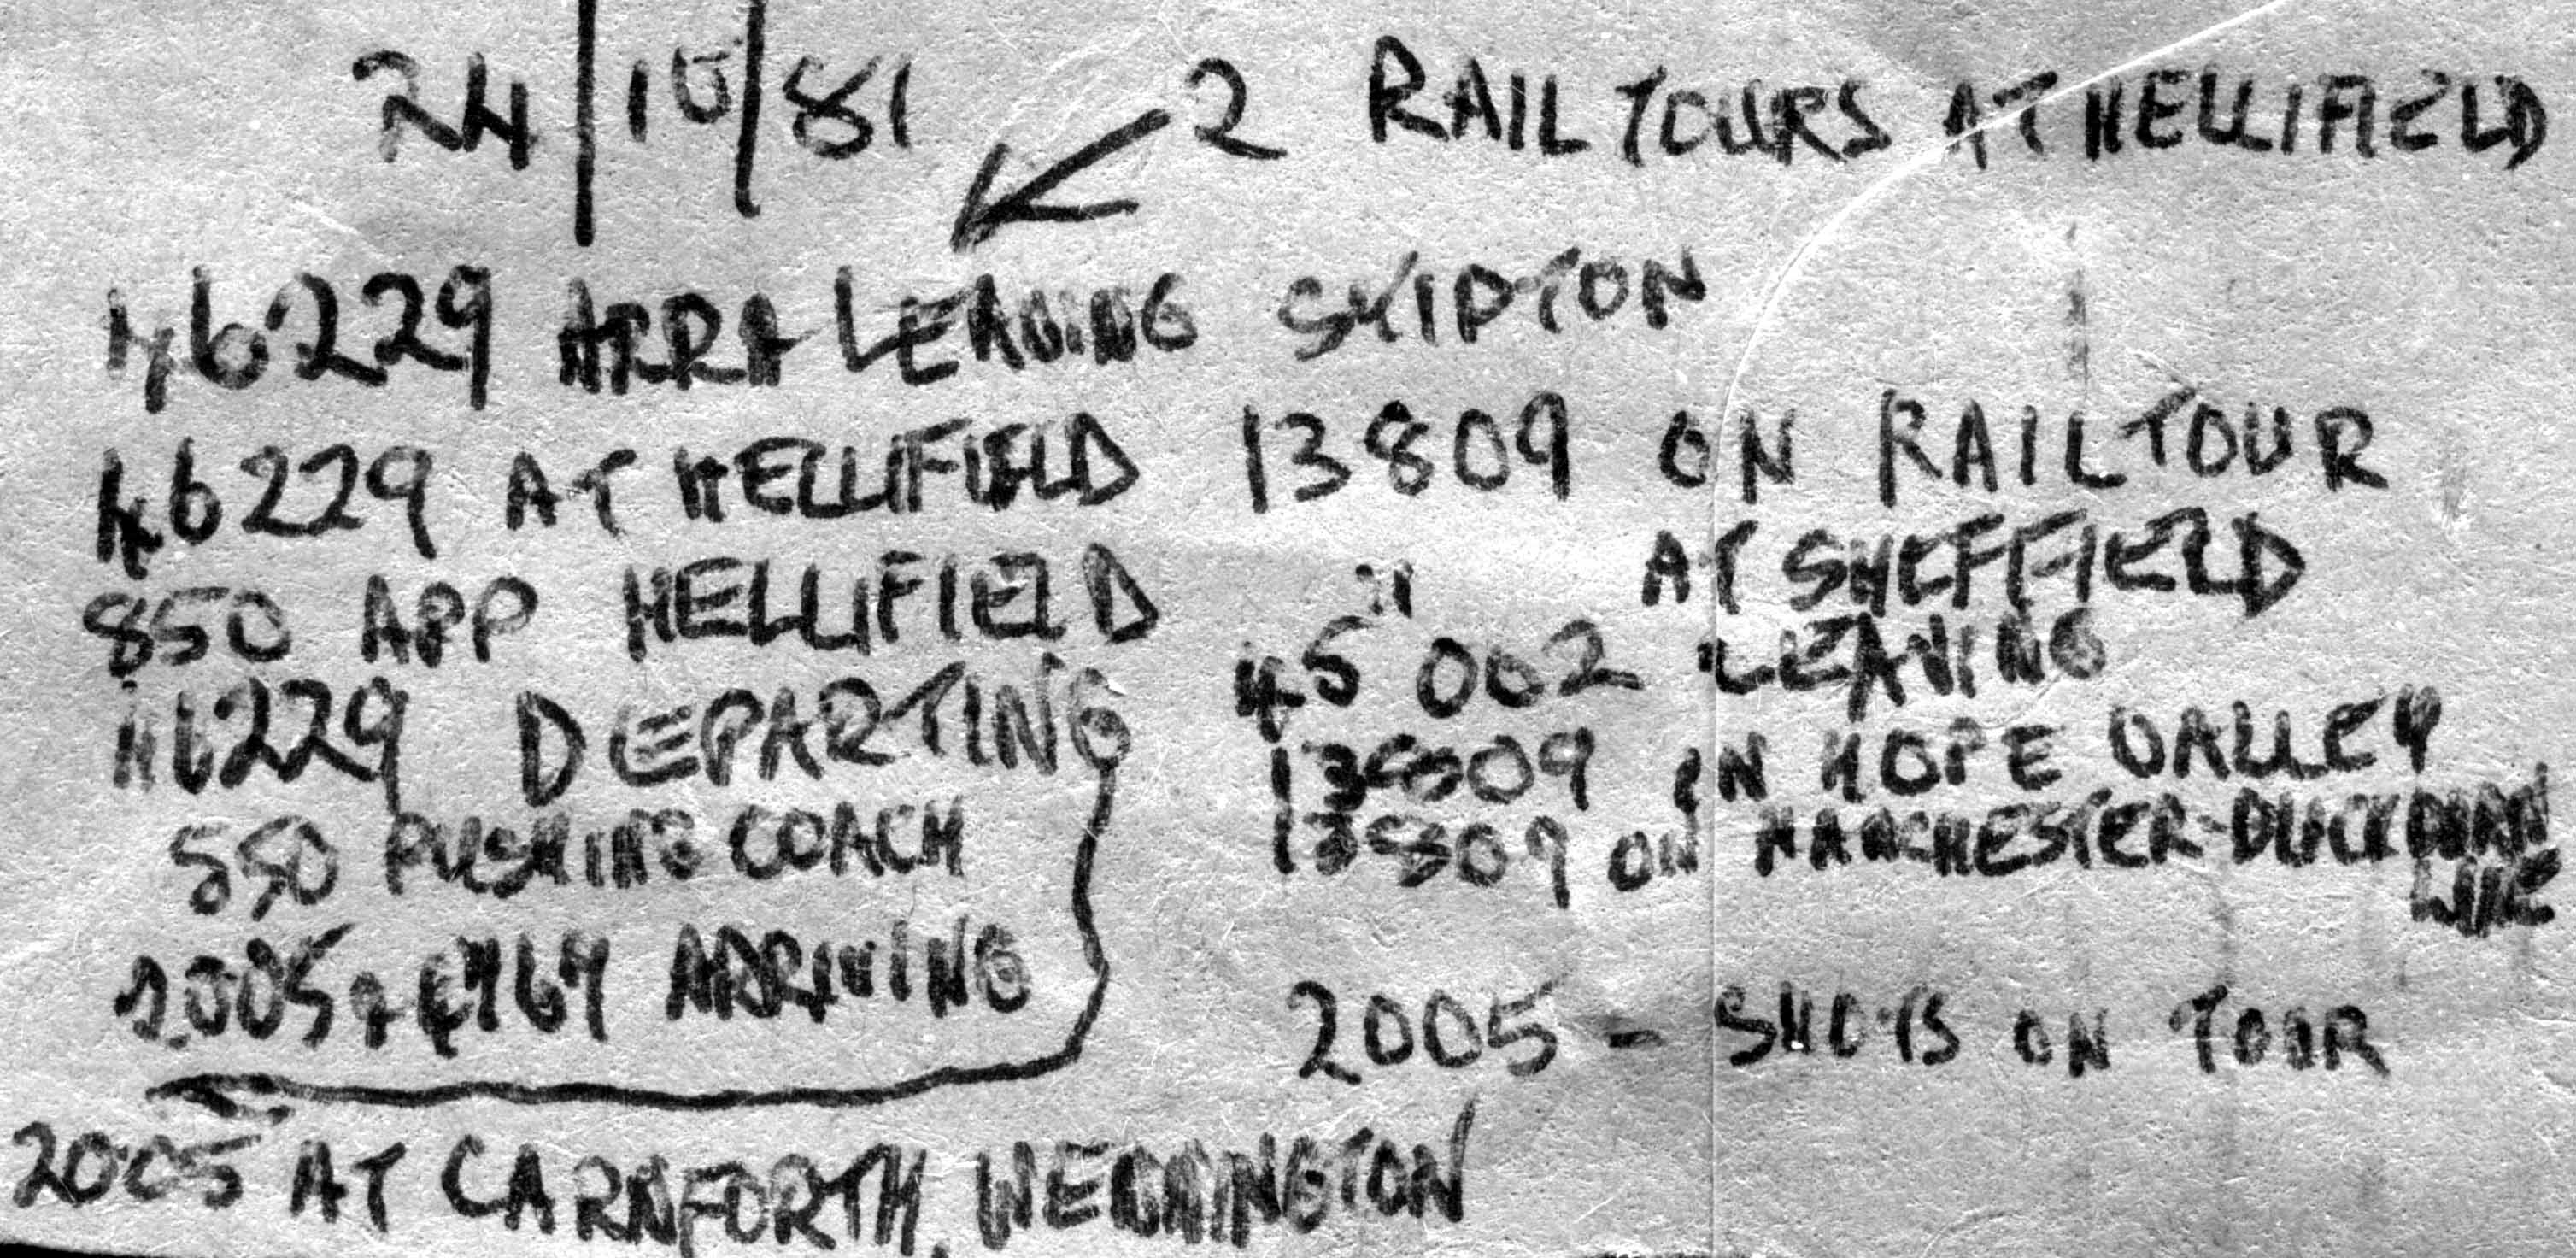 24/10/81 2 RAILTOURS AT HELLIFIELD
46229 LEAVING SKIPTON
46229 AT HELLIFIELD
850 APP HELLIFIELD
46229 DEPARTING
850 PUSHING COACH
2005 + 4767 ARRIVING
2005 AT CARNFORTH, WENNINGTON
13809 ON RAILTOUR
AT SHEFFIELD
" 45002 LEAVING
13809 IN HOPE VALLEY
13809 ON MANCHESTER-
LINE
2005 - SHOTS ON TOUR